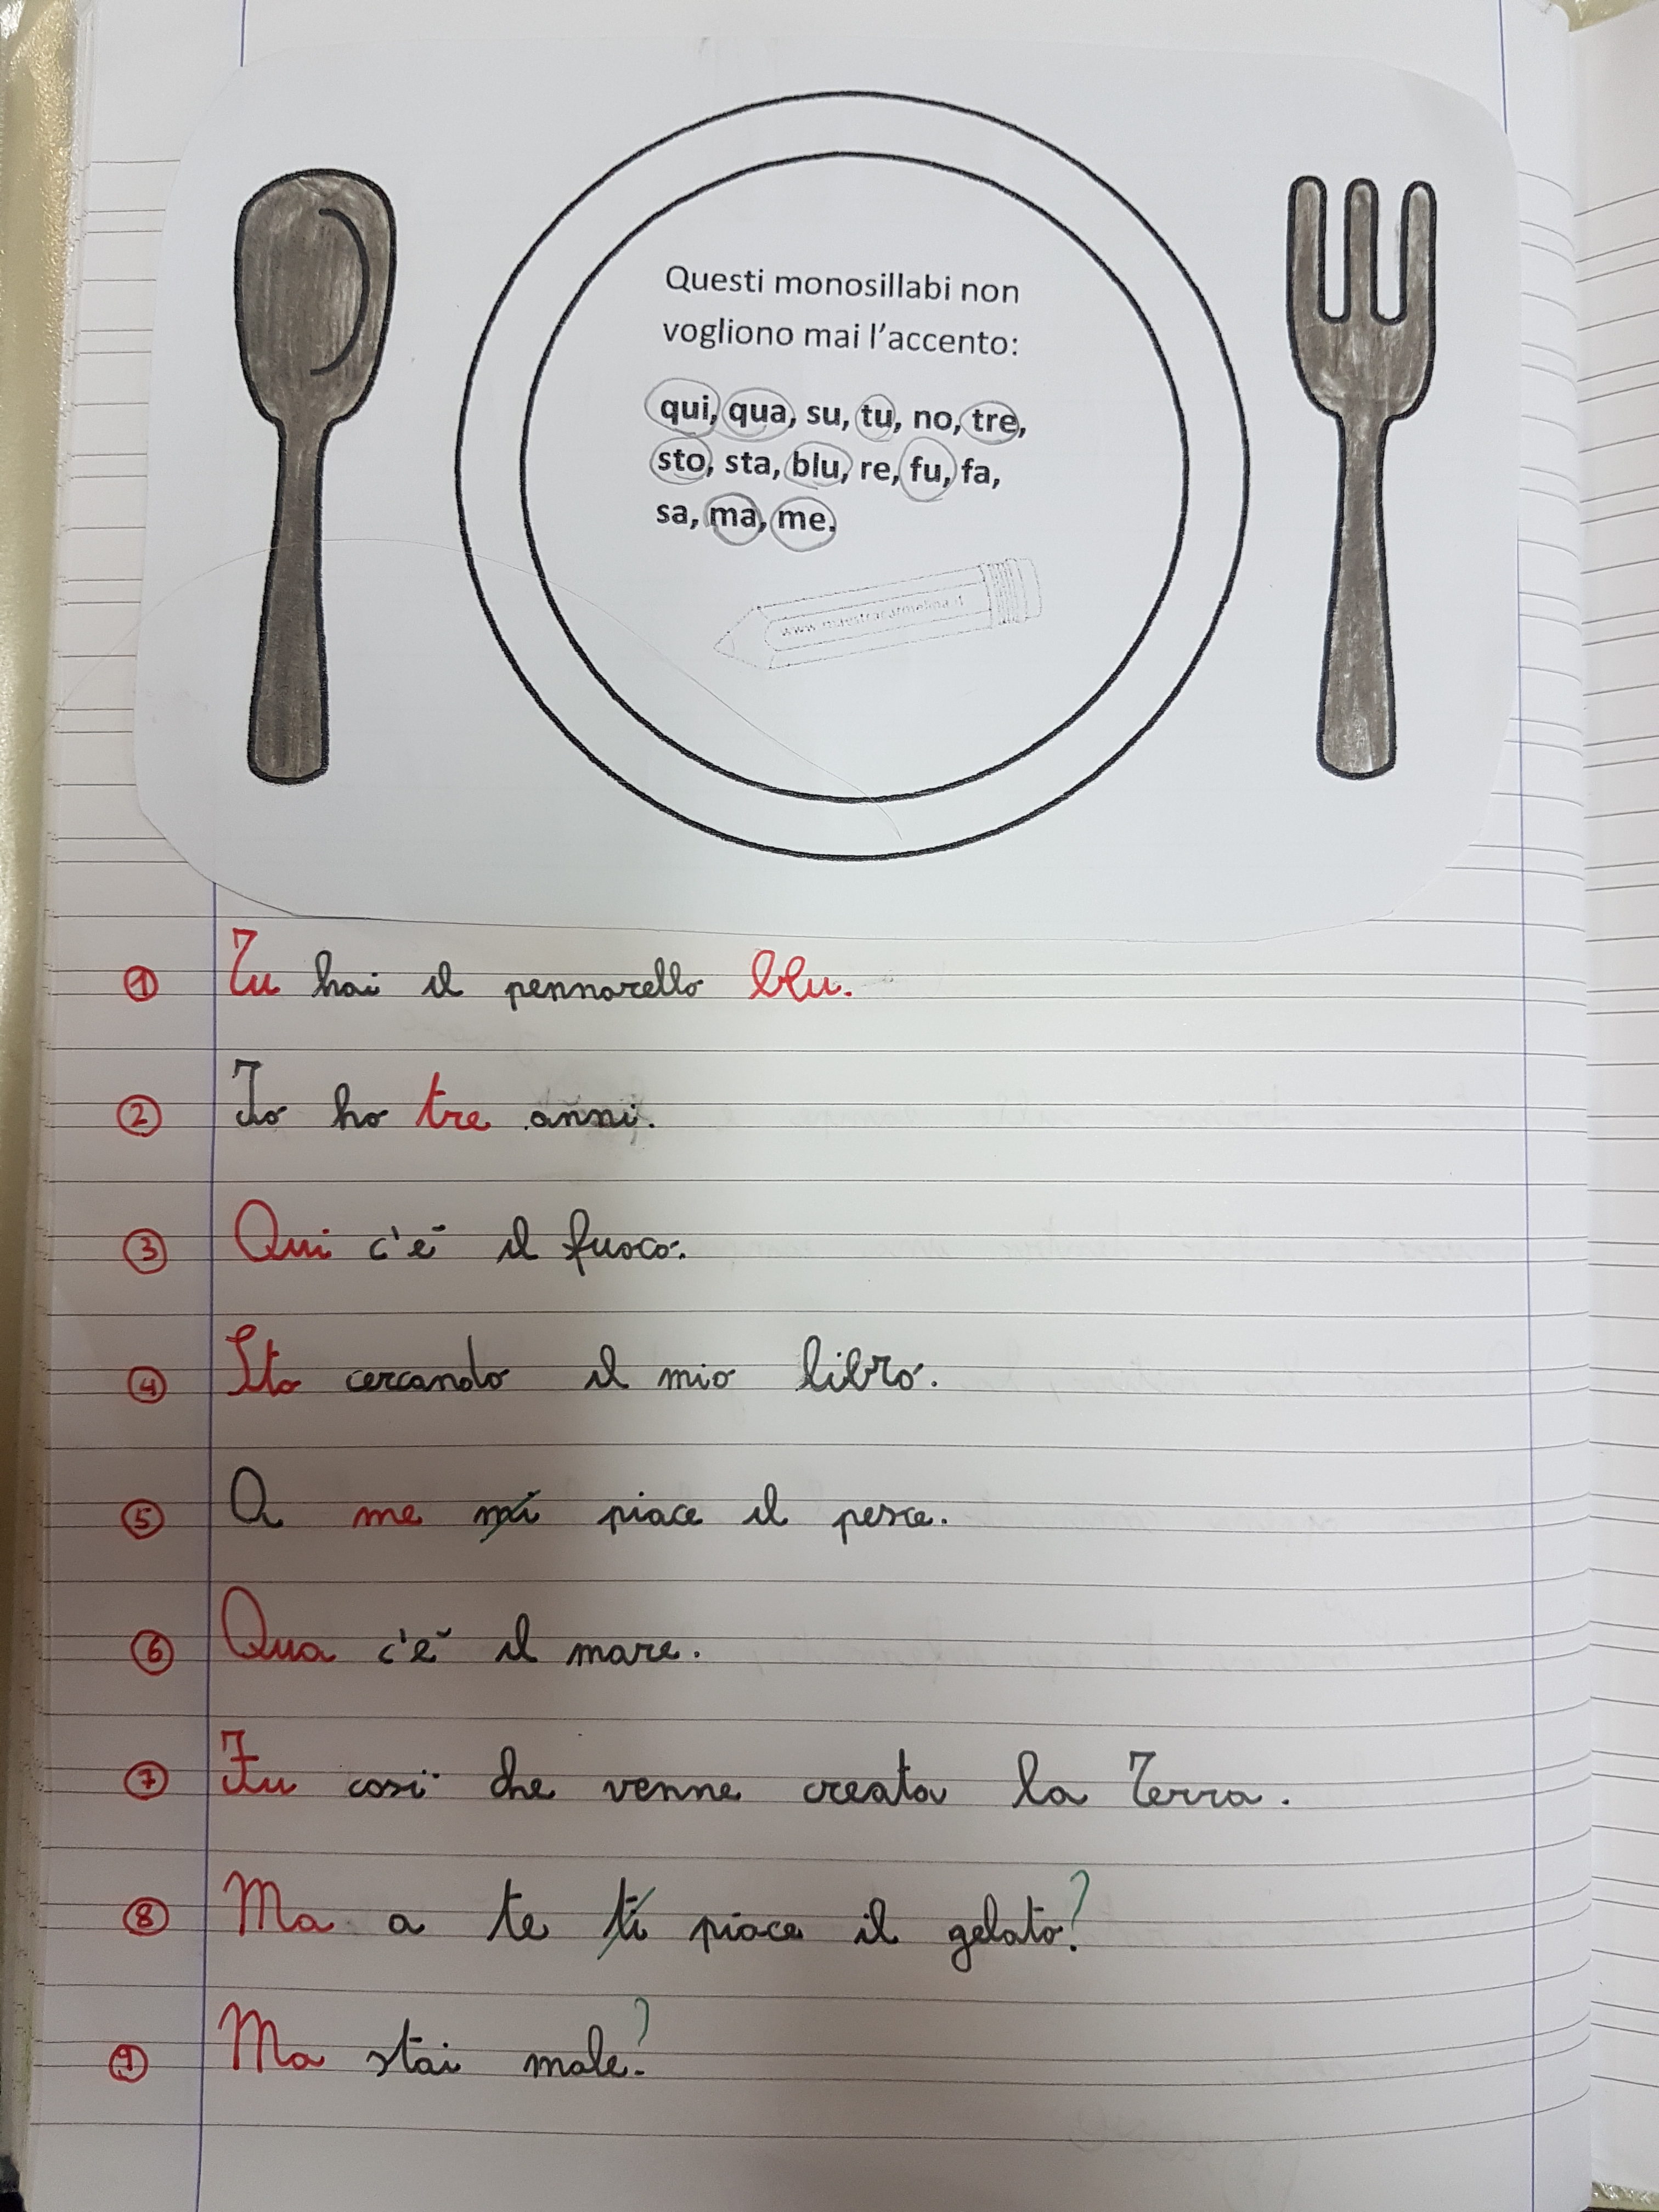 Questi monosillabi non
vogliono mai l'accento:
qui, qua, su, tu, no, tre,
sto, sta, blu, re, fu, fa,
sa, ma, me.
www.maestracarmelina.it
1 Tu hai il pennarello blu.
2 Io ho tre anni.
3 Qui c'è il fuoco.
4 Sto cercando il mio libro.
5 A me mi piace il pesce.
6 Qua c'è il mare.
7 Fu così che venne creata la Terra.
8 Ma a te ti piace il gelato?
9 Ma stai male?